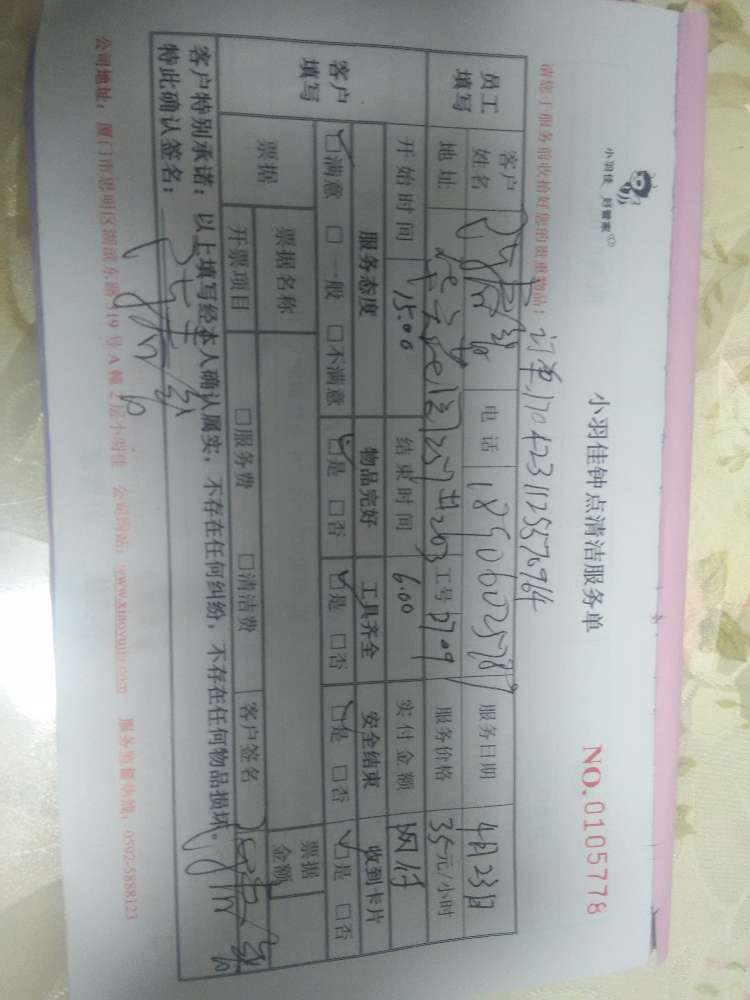 小羽佳 好管家
小羽佳钟点清洁服务单
NO.0105778
订单1704231125570964
请您于服务前收拾好您的贵重物品!
员工填写 客户姓名 电话 服务日期 4月23日
地址 工号 服务价格 35元/小时
客户填写 开始时间 15.00 结束时间 6.00 实付金额 网付
服务态度 物品完好 工具齐全 安全结束 收到卡片
☑满意 □一般 □不满意 ☑是 □否 ☑是 □否 ☑是 □否 ☑是 □否
票据 票据名称 票据金额
开票项目 □服务费 □清洁费 客户签名
客户特别承诺:以上填写经本人确认属实,不存在任何纠纷,不存在任何物品损坏。
特此确认签名:
公司地址:厦门市思明区湖滨东路319号A幢2层小羽佳 公司网站:www.xiaoyujia.com 服务监督热线:0592-5888123